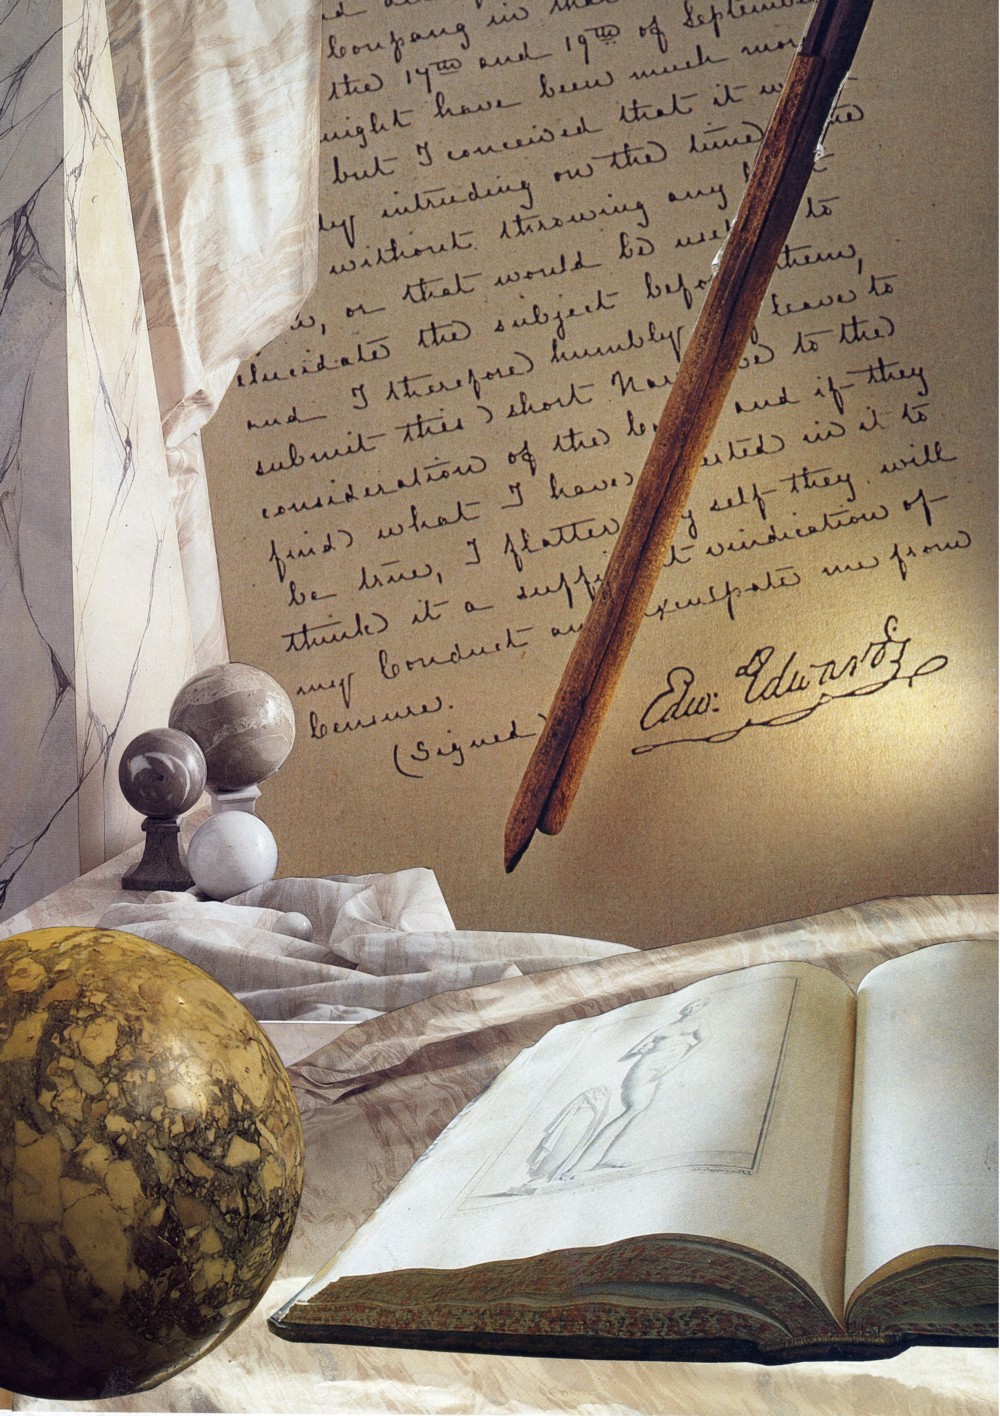 Company in that
the 17th and 19th of September
might have been much mor
but I conceived that it w
ly intruding on the time the
without throwing any t
w, or that would be usef to
elucidate the subject befo them,
and I therefore humbly leave to
submit this short Nar ve to the
consideration of the bo and if they
find what I have ested in it to
be true, I flatter y self they will
think it a suffi t vindication of
my Conduct an exculpate me from
Censure.
(Signed) Edw: Edwards